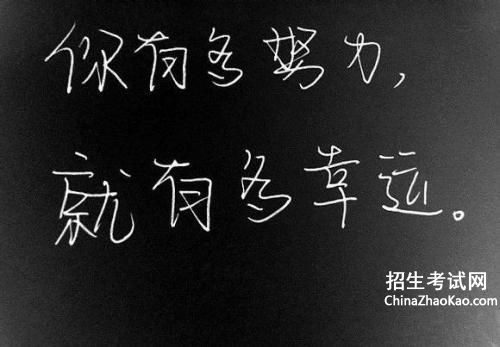 你有多努力，
就有多幸运。
招生考试网
ChinaZhaoKao.com